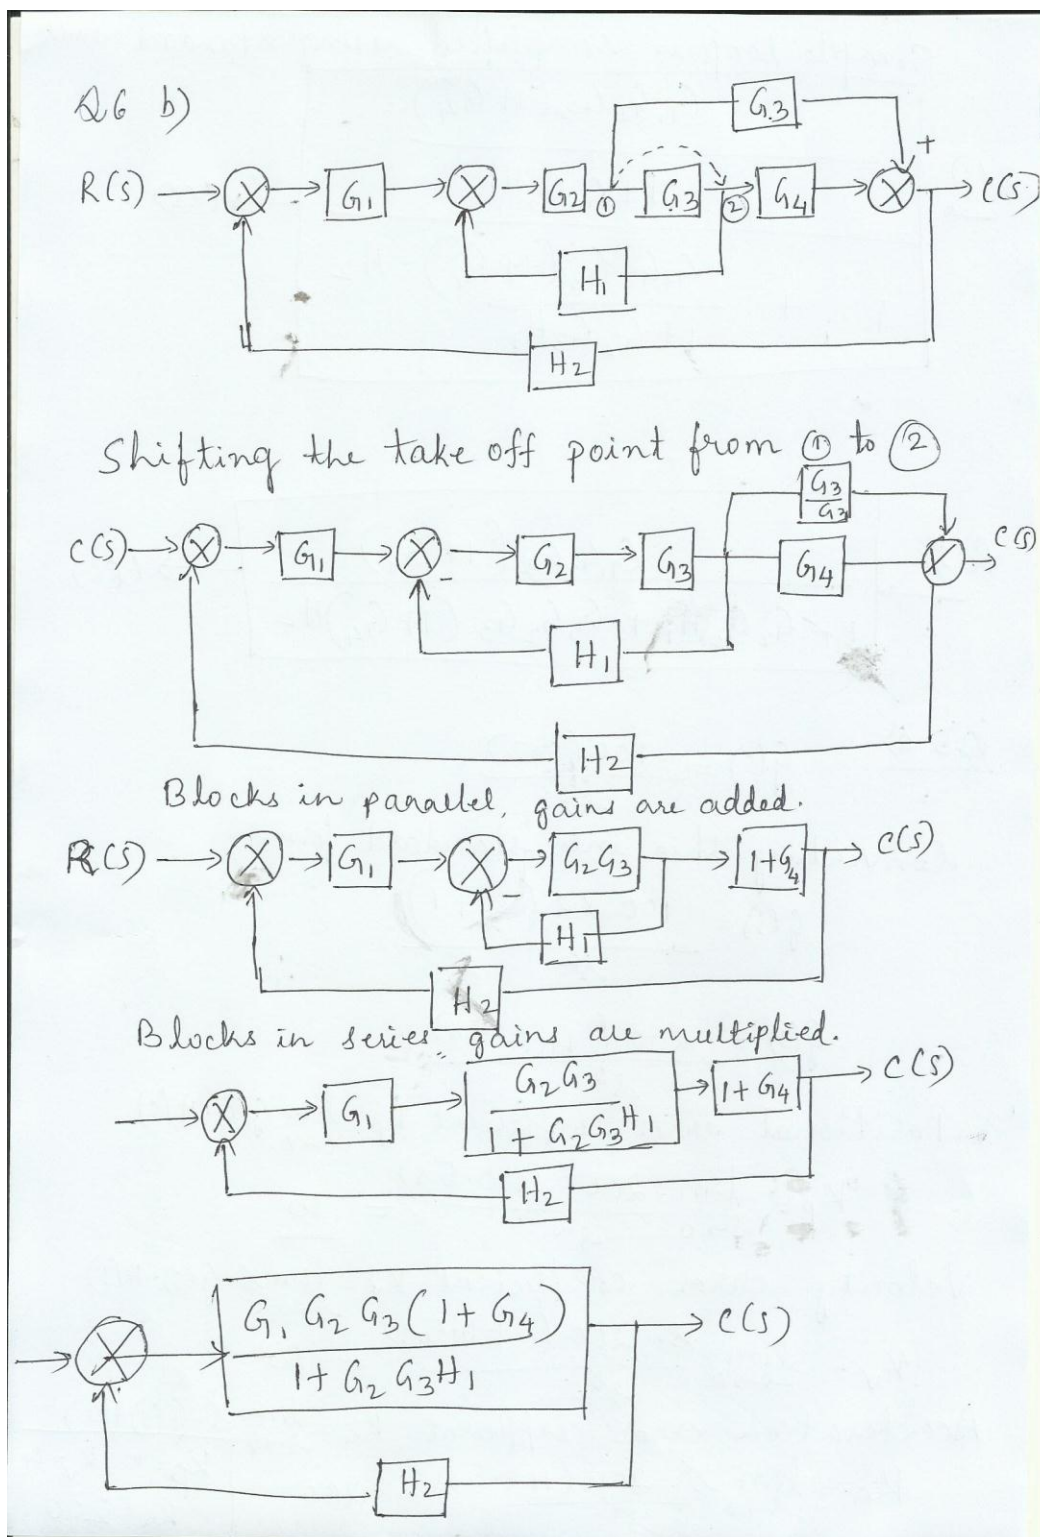 Q6 b)
G.3
+
R(s) G1 G2 ① G3 ② G4 C(s)
H1
H2
Shifting the take off point from ① to ②
G3
G3
C(s) G1 - G2 G3 G4 C(s)
H1
H2
Blocks in parallel, gains are added.
R(s) G1 - G2G3 1+G4 C(s)
H1
H2
Blocks in series, gains are multiplied.
G1 G2G3 1+G4 C(s)
1+G2G3H1
H2
G1 G2 G3(1+G4) C(s)
1+G2G3H1
H2